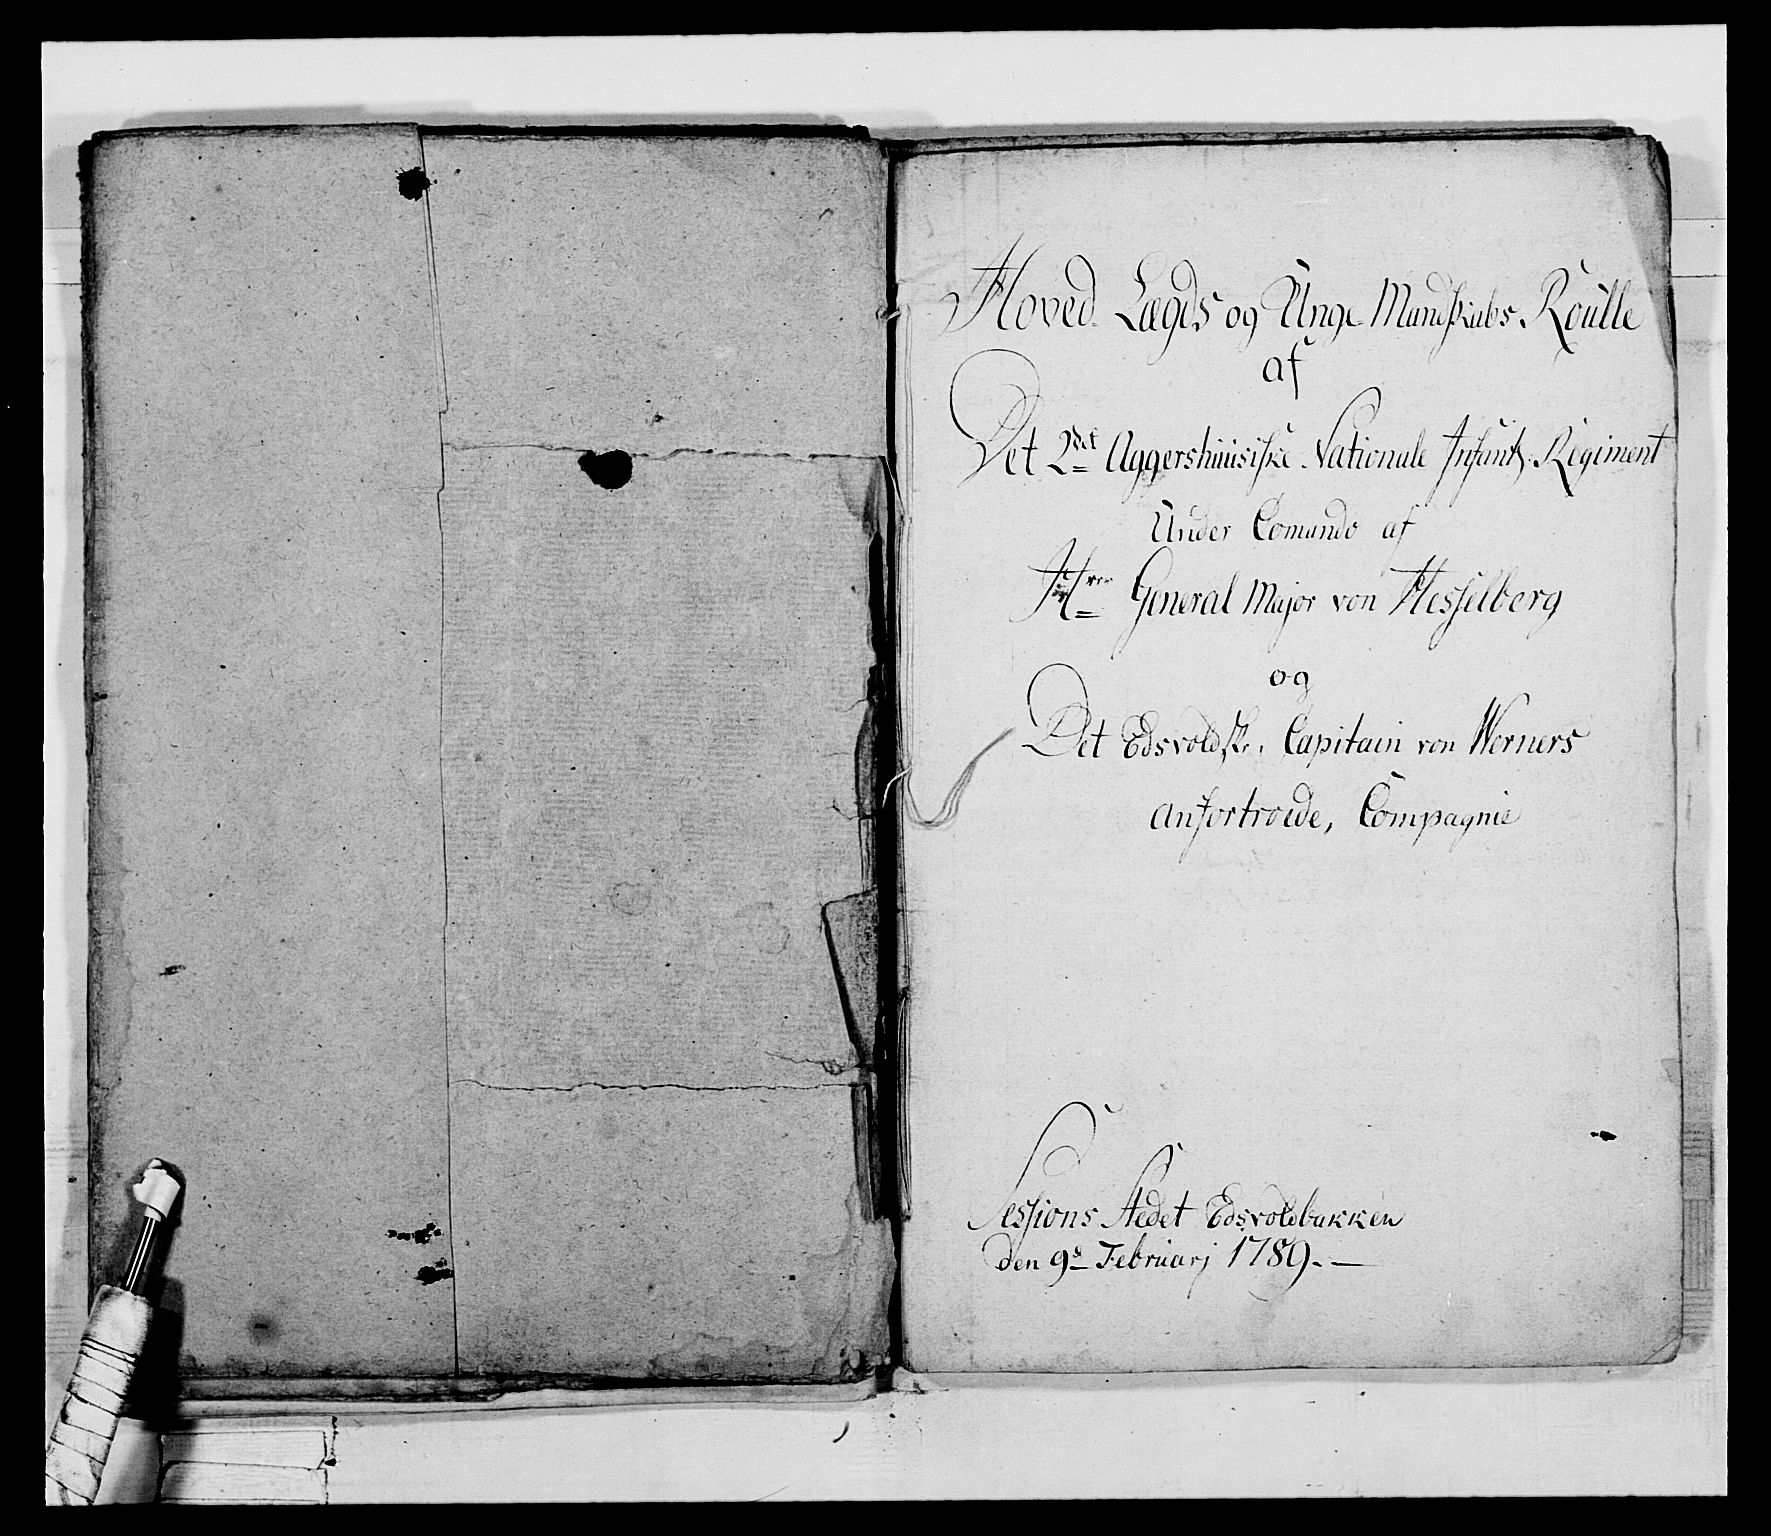 Hoved Lægds og Unge Mandskabs Roulle
af
Det 2det Aggershuusiske Nationale Infant: Regiment
Under Comando af
Hrr General Major von Hesselberg
og
Det Edsvoldske, Capitain von Werners
anfortroede, Compagnie
Sessions Stedet Edsvoldbakken
den 9d Februarj 1789. —